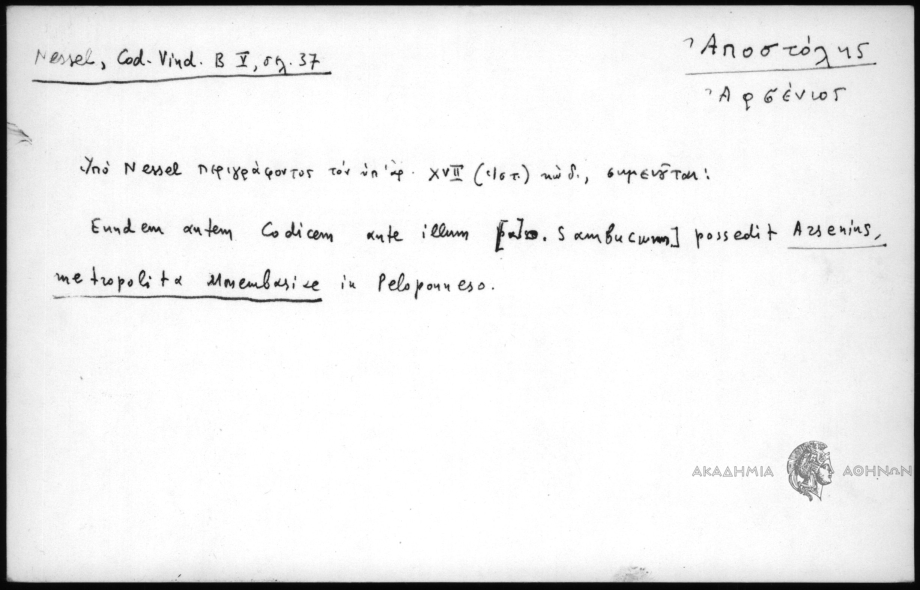 Nessel, Cod. Vind. B V, σελ. 37
Ἀποστόλης
Ἀρσένιος
Ὑπὸ Nessel περιγράφοντος τὸν ὑπ' ἀρ. XVII (ἱστ.) κώδ., σημειοῦται:
Eundem autem Codicem ante illum Sambucum] possedit Arsenius,
metropolita Monembasiae in Peloponneso.
ΑΚΑΔΗΜΙΑ ΑΘΗΝΩΝ